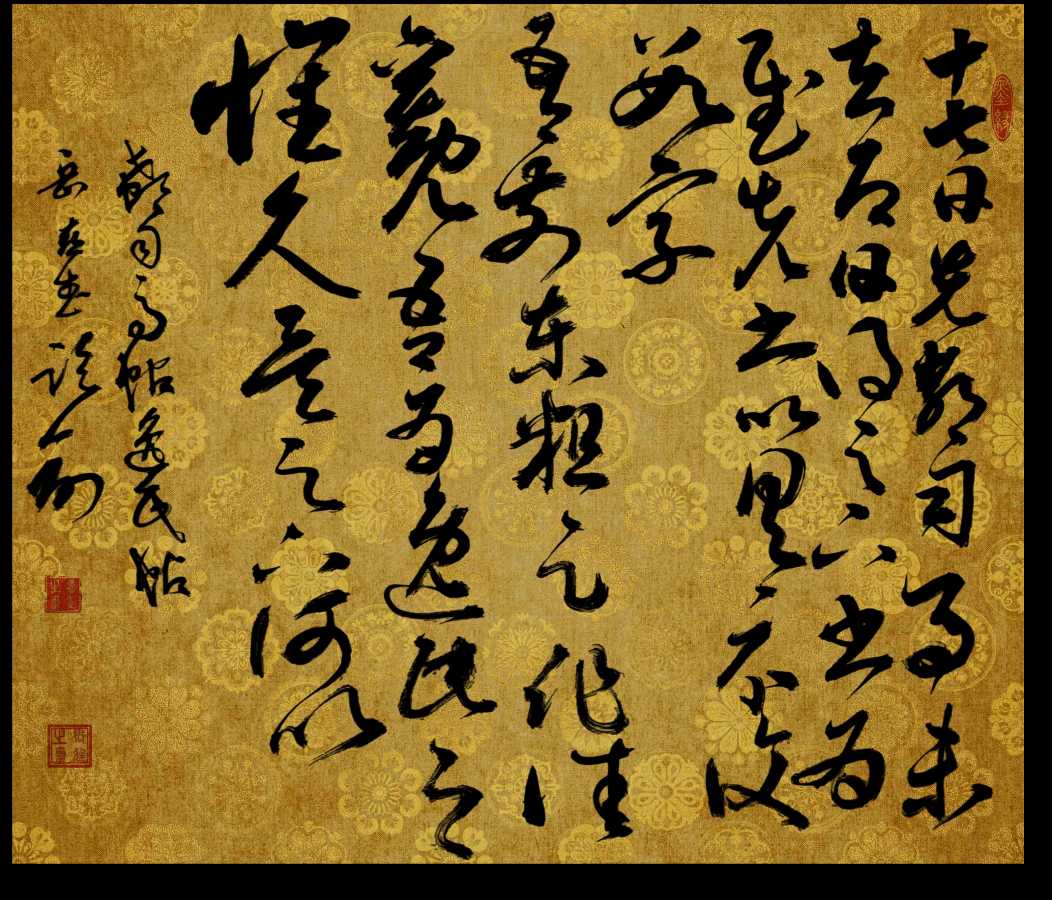 十七日先郗司馬未
去即日得足下書為
慰先書以具示復
數字
吾前東粗足作佳
觀吾為逸民之
懷久矣足下何以
郗司馬帖逸民帖